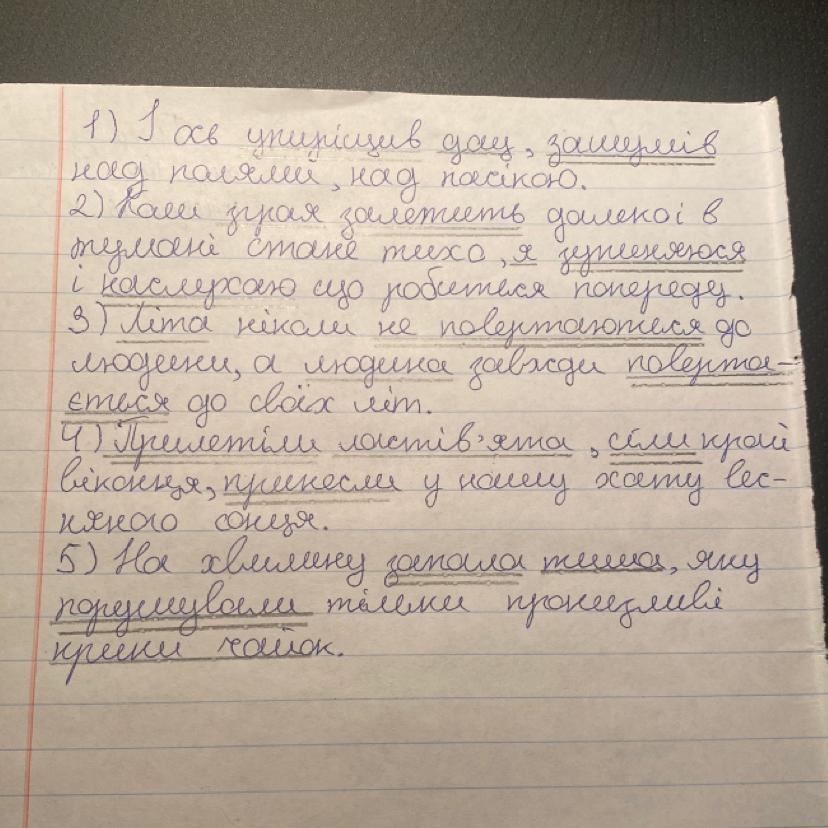 1) І ось уперіщив дощ, зашумів
над полями, над пасікою.
2) Коли зграя залетить далеко і в
тумані стане тихо, я зупиняюся
і наслухаю що робиться попереду.
3) Літа ніколи не повертаються до
людини, а людина завжди поверта-
ється до своїх літ.
4) Прилетіли ластів'ята, сіли край
віконця, принесли у нашу хату вес-
няного сонця.
5) На хвилину запала тиша, яку
порушували тільки пронизливі
крики чайок.